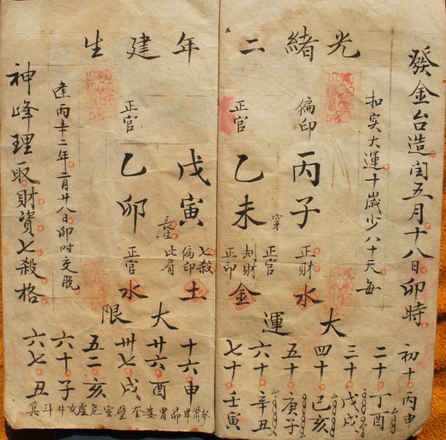 發金台造閏五月十八日卯時
光緒二年建生
扣实大運十歲少八十天每
逢丙辛之年二月廿八日卯时交脱
偏印 丙子 正財 水
正官 乙未 正官 刦財 正印 金
戊寅 七殺 偏印 比肩 土
正官 乙卯 正官 水
神峰理取財資七殺格
大運
初十 丙申
二十 丁酉
三十 戊戌
四十 己亥
五十 庚子
六十 辛丑
七十 壬寅
大限
十六 申
廿六 酉
卅七 戌
五二 亥
六十 子
六七 丑